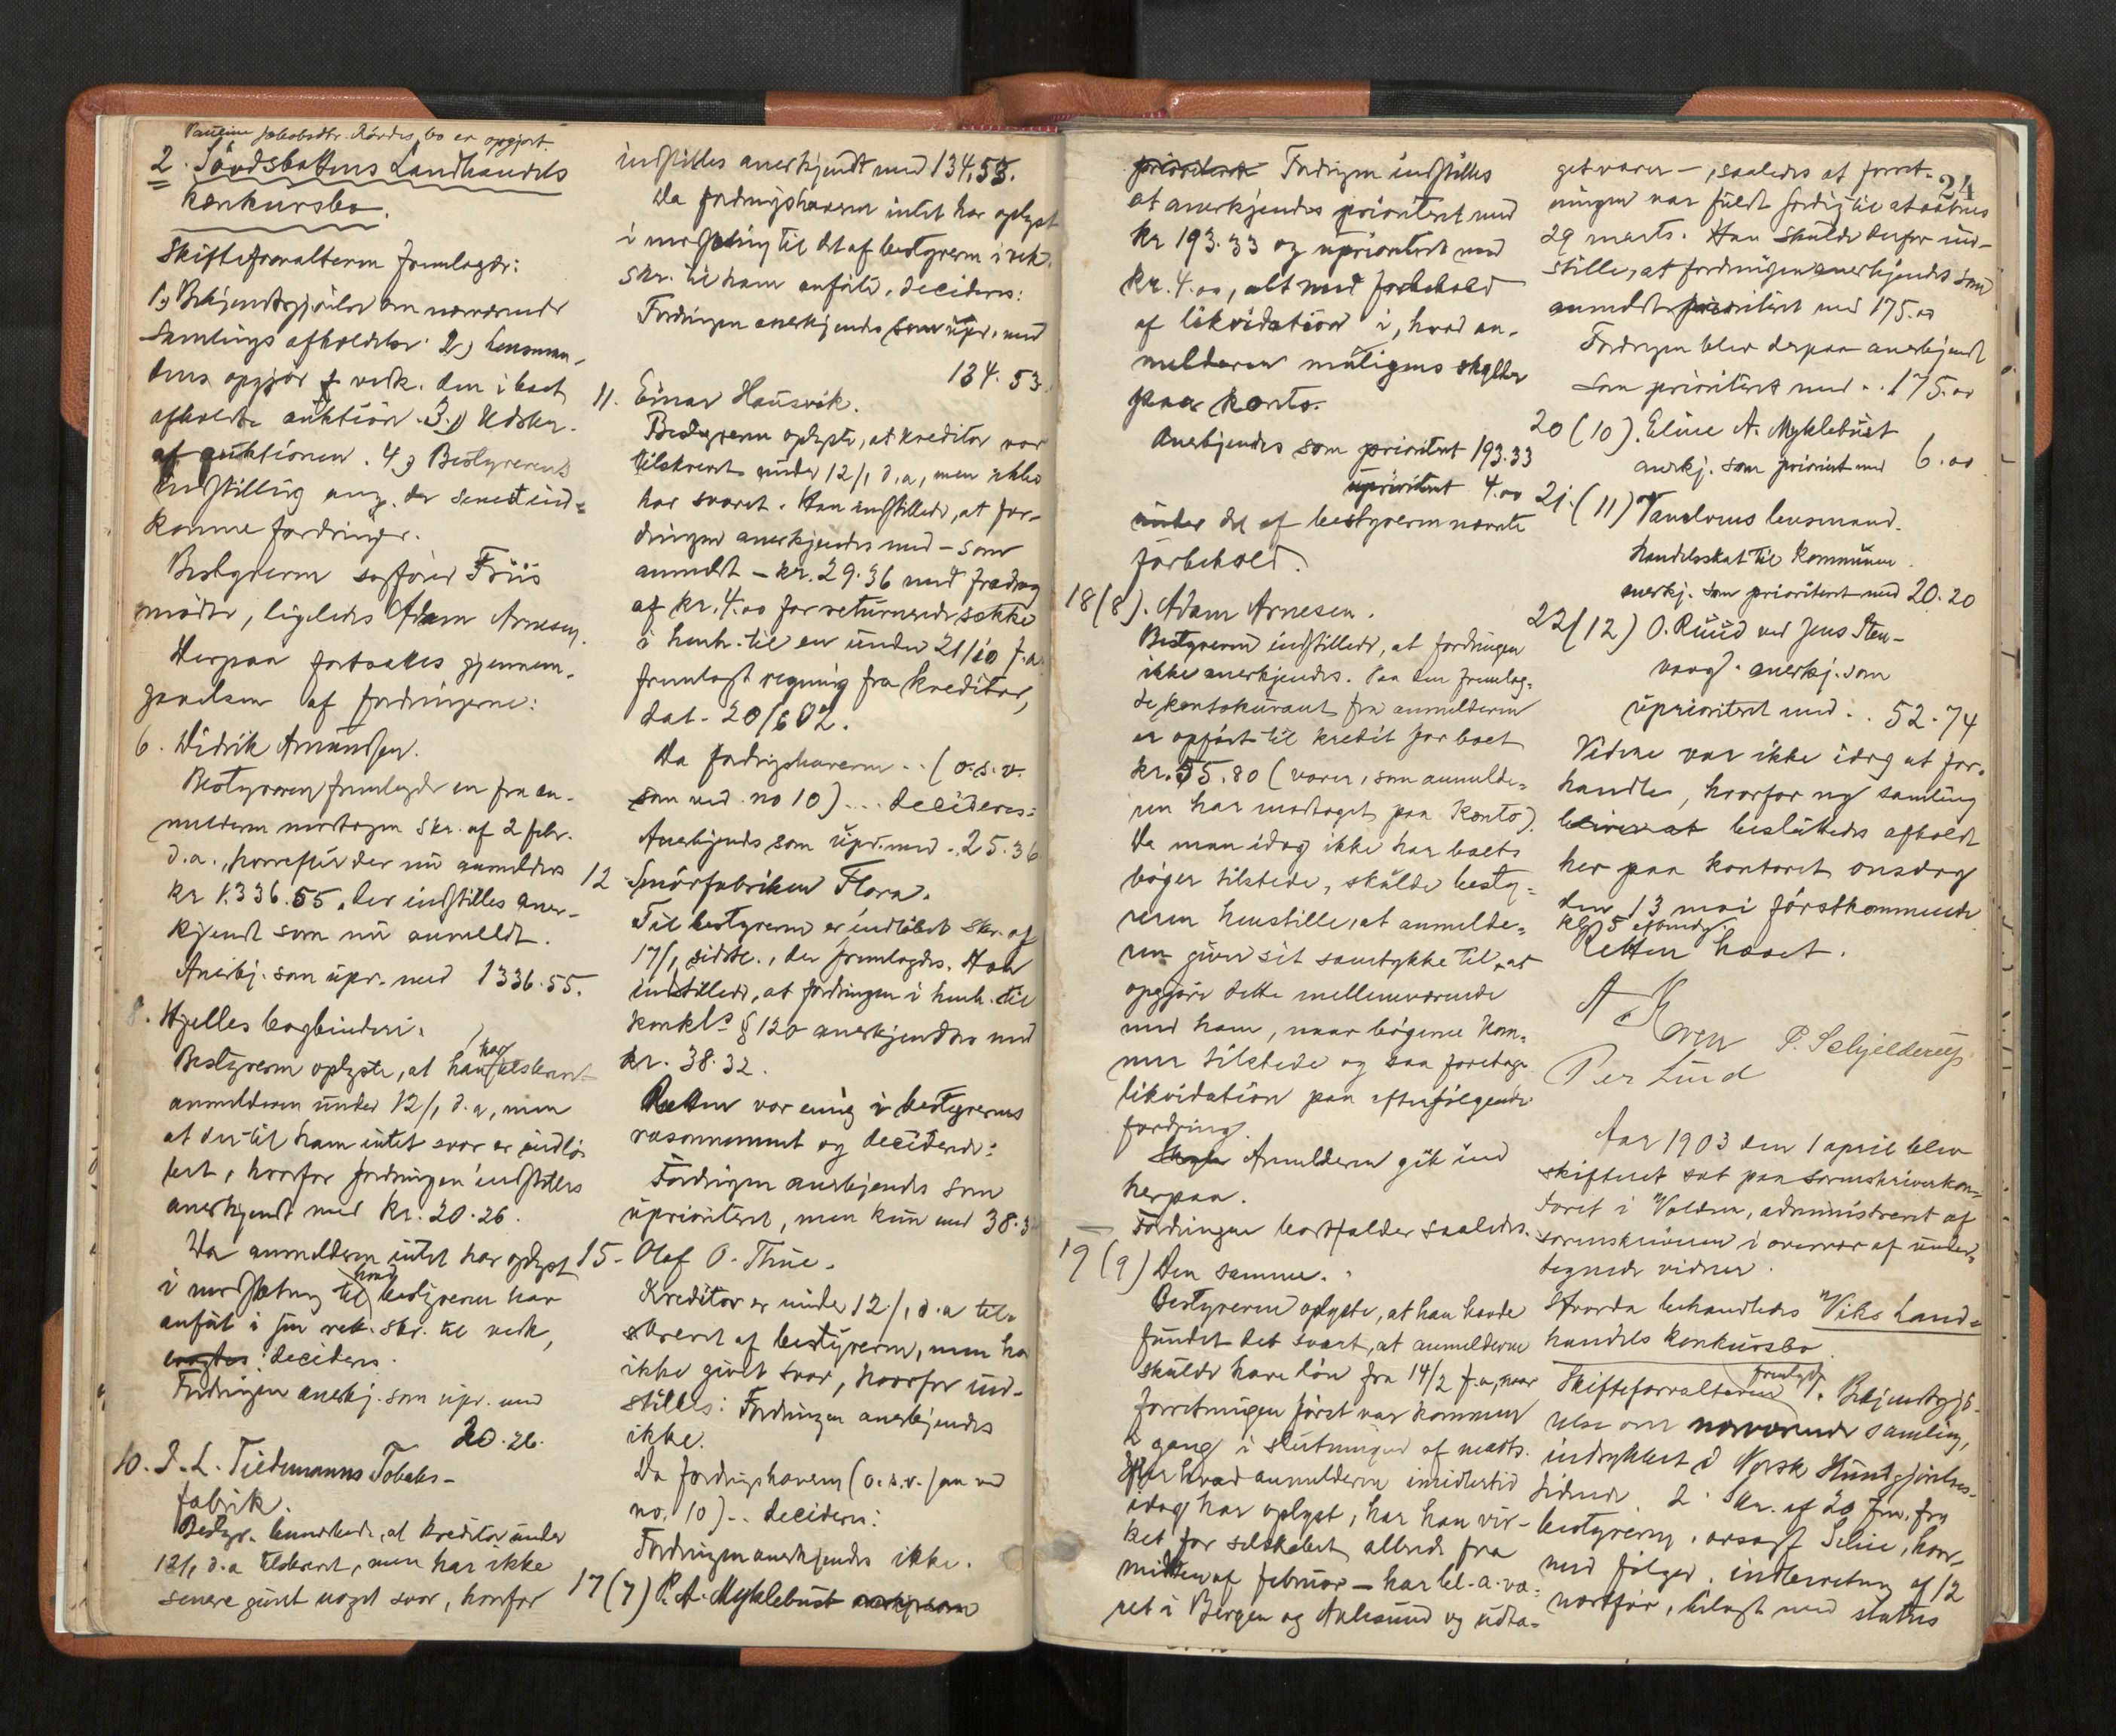 Pauline Jakobsdtr. Aardes bo er opgjort.
2. Søvdsbottens Landhandels
konkursbo.
Skifteforvalteren fremlagde:
1.) Bekjendtgjørelse om nærværende
samlings afholdelse. 2.) Lensman-
dens opgjør vedk. den i boet
afholdte auktion. 3.) Udskr.
af auktionen. 4.) Bestyrerens
indstilling ang. de senest ind-
komne fordringer.
Bestyreren sagfører Friis
mødte, ligeledes Adam Arnesen.
Derpaa fortsattes gjennem-
gaaelsen af fordringerne:
6. Didrik Amundsen.
Bestyreren fremlagde en fra an-
melderen modtagen skr. af 2 febr.
d.a., hvorefter der nu anmeldes
kr 1.336.55, der indstilles aner-
kjendt som nu anmeldt.
Anerkj. som upr. med 1336.55.
8. Hjelles bogbinderi.
Bestyreren oplyste, at han har tilskrevet
anmelderen under 12/1 d.a, men
at der til ham intet svar er indlø-
bet, hvorfor fordringen indstilles
anerkjendt med kr. 20.26.
Da anmelderen intet har oplyst
i modsætning til hvad bestyreren har
anført i sin rek. skr. til vedk,
decideres:
Fordringen anerkj. som upr. med
20.26.
10. J. L. Tiedemanns Tobaks-
fabrik.
Bestyr. bemærkede, at kreditor under
12/1 d.a tilskrevet, men har ikke
senere givet noget svar, hvorfor
indstilles anerkjendt med 134,53.
Da fordringshaveren intet har oplyst
i modsætning til det af bestyreren i rek.
skr. til ham anførte, decideres:
Fordringen anerkjendes som upr. med
134.53.
11. Einar Hausvik.
Bestyreren oplyste, at kreditor var
tilskrevet under 12/1 d.a, men ikke
har svaret. Han indstillede, at for-
dringen anerkjendes med - som
anmeldt - kr. 29.36 med fradrag
af kr. 4.00 for returnerede sække
i henh. til en under 21/10 f.a.
fremlagt regning fra kreditor,
dat. 20/6 02.
Da fordringshaveren .. (o.s.v.
som ved no 10) .... decideres:
Anerkjendes som upr. med .. 25.36
12 Smørfabriken Flora.
Til bestyreren er indløbet skr. af
17/1 sidstl., der fremlagdes. Han
indstillede, at fordringen i henh. til
konkl.s § 120 anerkjendtes med
kr. 38.32.
Retten var enig i bestyrerens
ræsonnement og deciderede:
Fordringen anerkjendes som
uprioriteret, men kun med 38.3
15. Olaf O. Thue.
Kreditor er under 12/1 d.a til-
skrevet af bestyreren, men ha
ikke givet svar, hvorfor ind-
stilles: Fordringen anerkjendes
ikke.
Da fordringshaveren (o.s.v. som ved
no. 10) .. decideres:
Fordringen anerkjendes ikke.
17 (7) P. A. Myklebust anerkj. som
prioriteret Fordringen indstilles
at anerkjendes prioriteret med
kr 193.33 og uprioriteret med
kr. 4.00, alt med forbehold
af likvidation i, hvad an-
melderen muligens skylder
paa konto.
Anerkjendes som prioritert 193.33
uprioritert 4.00
under det af bestyreren nævnte
forbehold.
18 (8). Adam Arnesen.
Bestyreren indstillede, at fordringen
ikke anerkjendes. Paa den fremlag-
de kontokurant fra anmelderen
er opført til kredit for boet
kr. 55.80 (varer, som anmelde-
ren har modtaget paa konto).
Da man idag ikke har boets
bøger tilstede, skulde besty-
reren henstille, at anmelde-
ren giver sit samtykke til, at
opgjøre dette mellemværende
med ham, naar bøgerne kom-
mer tilstede og saa foretage
likvidation paa efterfølgende
fordring.
Anmelderen gik ind
herpaa.
Fordringen bortfalder saaledes.
19 (9) Den samme.
Bestyreren oplyste, at han havde
fundet det svært, at anmelderen
skulde have løn fra 14/2 f.a, naar
forretningen først var kommen
i gang i slutningen af marts.
Efter hvad anmelderen imidlertid
idag har oplyst, har han vir-
ket for selskabet allerede fra
midten af februar - har bl. a. væ-
ret i Bergen og Aalesund og udta-
24
get varer -, saaledes at forret-
ningen var fuldt færdig til at aabnes
29 marts. Han skulde derfor ind-
stille, at fordringen anerkjendes som
anmeldt prioritert med 175.00
Fordringen blev derpaa anerkjendt
som prioriteret med .. 175.00
20 (10). Eline A. Myklebust
anerkj. som prioriert med 6.00
21. (11) Vanelvens lensmand.
Handelsskat til kommunen.
anerkj. som prioriteret med 20.20
22 (12) O. Ruud ved Jens Sten-
vaag. anerkj. som
uprioriteret med .. 52.74
Videre var ikke idag at for-
handle, hvorfor ny samling
besluttedes afholdt
her paa kontoret onsdag
den 13 mai førstkommende
kl. 5 efterm.
Retten hævet.
A Koren P. Schjelderup
Per Lund
Aar 1903 den 1 april blev
skifteret sat paa sorenskriverkon-
toret i Volden, administreret af
sorenskriveren i overvær af under-
tegnede vidner.
Hvorda behandledes Viks Land-
handels konkursbo
Skifteforvalteren fremlagde 1. Bekjendtgjø-
relse om nærværende samling,
indrykket i Norsk Kundgjørelses-
tidende. 2. Skr. af 20 frm. fra
bestyreren, ovsagf Selie, hvor-
med følger, indberetning af 12
næstfør, bilagt med status